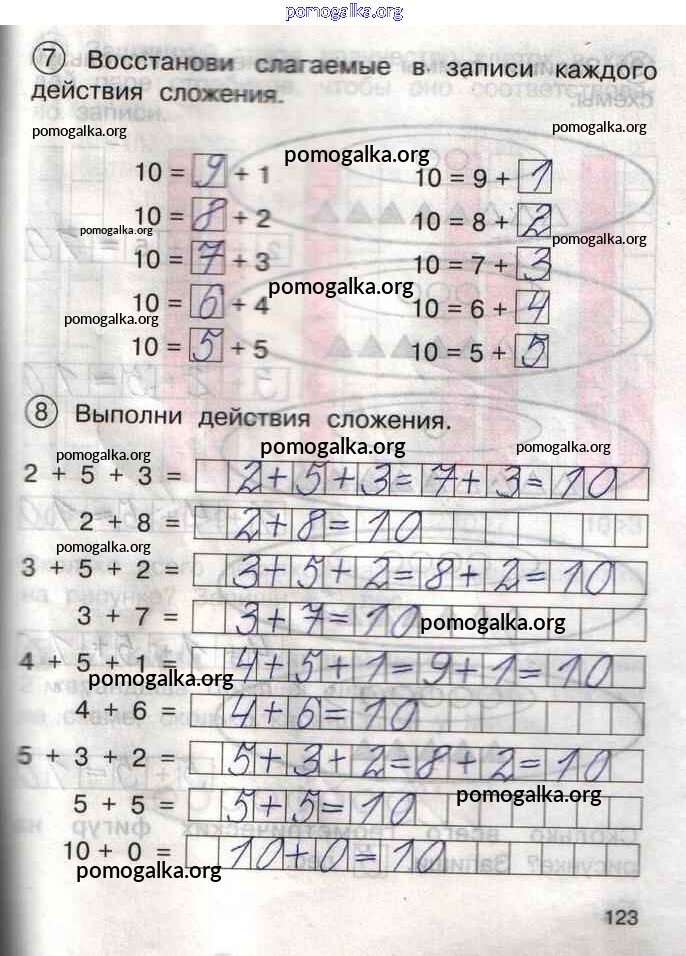 pomogalka.org
7 Восстанови слагаемые в записи каждого
действия сложения.
pomogalka.org
pomogalka.org
pomogalka.org
10 = 9 + 1
10 = 9 + 1
10 = 8 + 2
10 = 8 + 2
pomogalka.org
pomogalka.org
10 = 7 + 3
10 = 7 + 3
pomogalka.org
10 = 6 + 4
10 = 6 + 4
pomogalka.org
10 = 5 + 5
10 = 5 + 5
8 Выполни действия сложения.
pomogalka.org
pomogalka.org
pomogalka.org
2 + 5 + 3 = 2+5+3=7+3=10
2 + 8 = 2+8=10
pomogalka.org
3 + 5 + 2 = 3+5+2=8+2=10
3 + 7 = 3+7=10
pomogalka.org
4 + 5 + 1 = 4+5+1=9+1=10
pomogalka.org
4 + 6 = 4+6=10
5 + 3 + 2 = 5+3+2=8+2=10
pomogalka.org
5 + 5 = 5+5=10
10 + 0 = 10+0=10
pomogalka.org
123